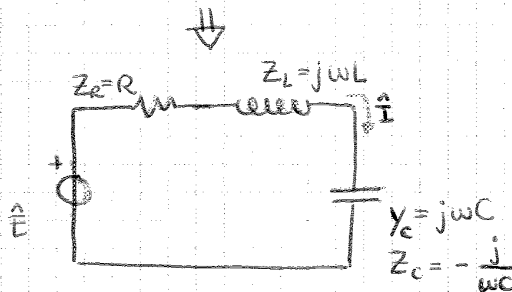 Z_R=R
Z_L=jωL
Î
+
Ê
Y_c=jωC
Z_c=-j/ωC